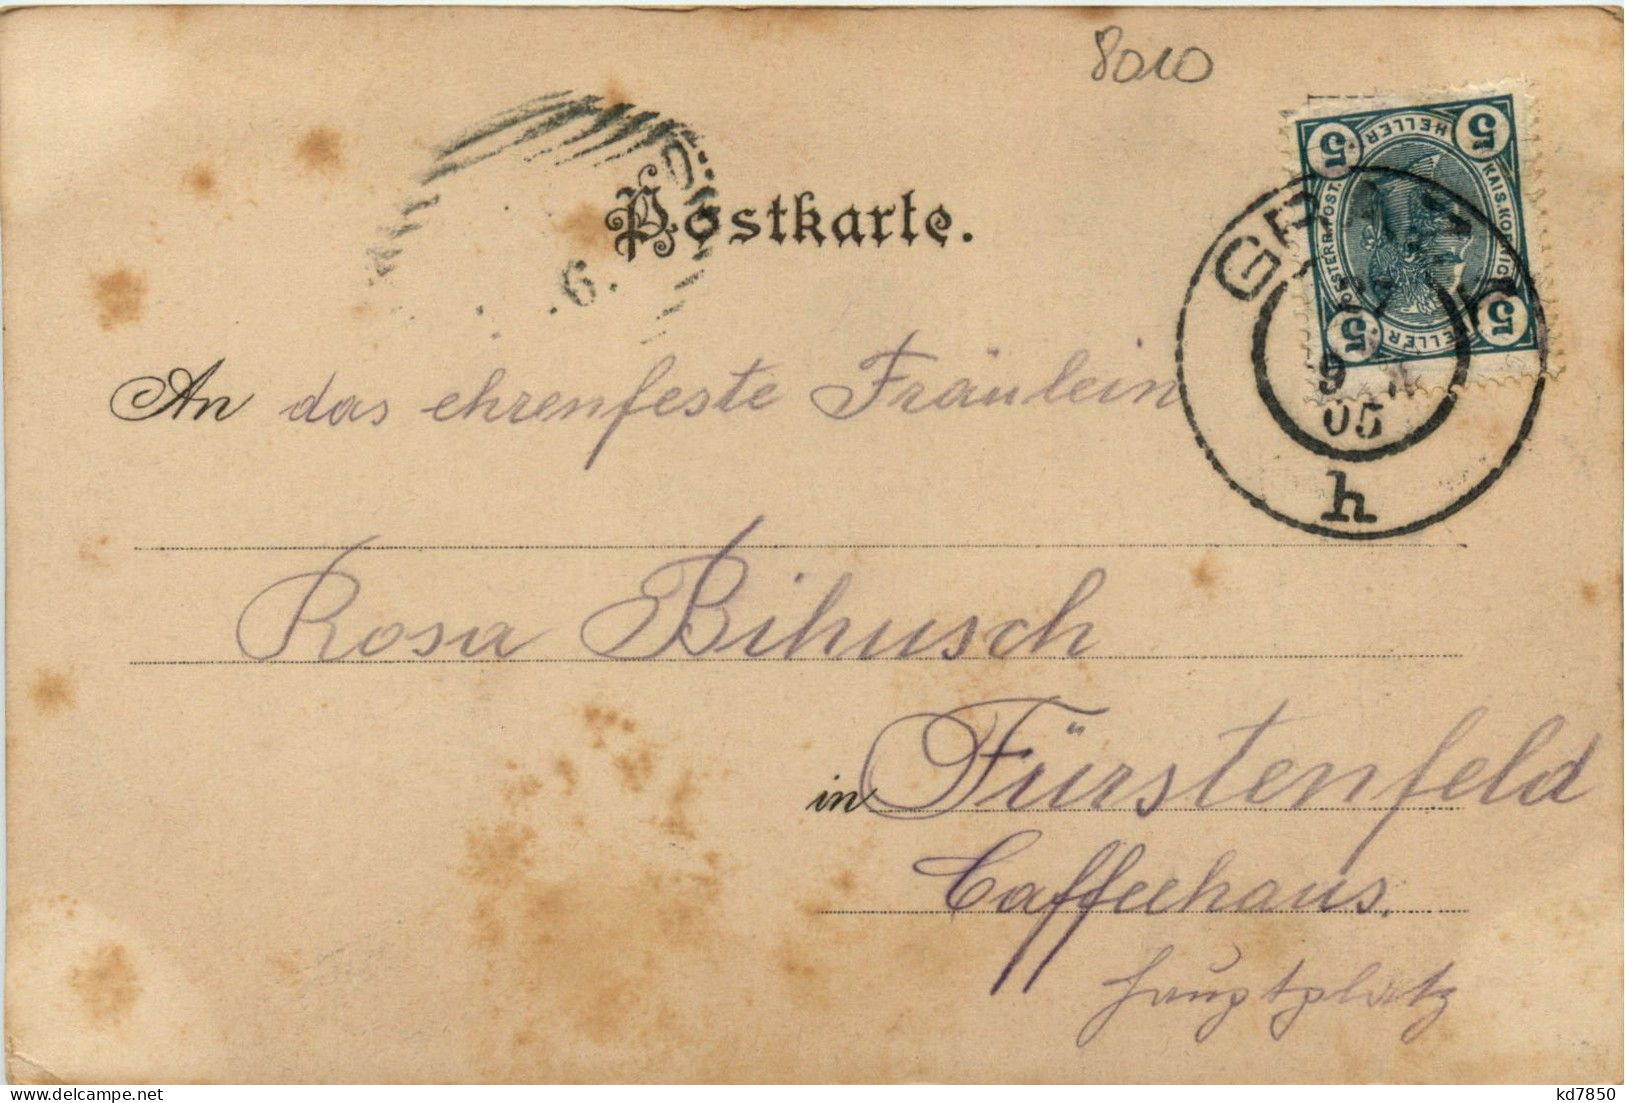 8010
HELLER
5 5
KAIS. KÖNIGL.
ÖSTERR. POST.
5 5
HELLER
GRAZ
9
05
h
Postkarte.
6.
An das ehrenfeste Fräulein
Rosa Bihusch
in Fürstenfeld
Caffeehaus.
Hauptplatz
kd7850